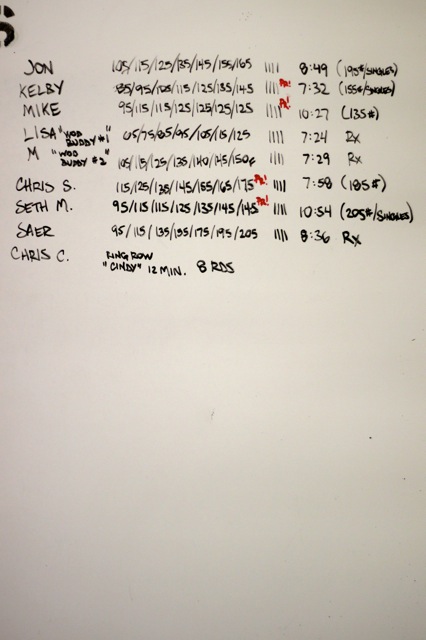 JON 105/115/125/135/145/155/165 |||| 8:49 (195#/SINGLES)
KELBY 85/95/105/115/125/135/145 PR! |||| 7:32 (155#/SINGLES)
MIKE 95/115/115/125/125/125/125 PR! |||| 10:27 (135#)
LISA "WOD BUDDY #1" 65/75/85/95/105/115/125 |||| 7:24 Rx
M "WOD BUDDY #2" 105/115/125/135/140/145/150 |||| 7:29 Rx
CHRIS S. 115/125/135/145/155/165/175 PR! |||| 7:58 (185#)
SETH M. 95/115/115/125/135/145/145 PR! |||| 10:54 (205#/SINGLES)
SAER 95/115/135/155/175/195/205 |||| 8:36 Rx
CHRIS C. RING ROW
"CINDY" 12 MIN. 8 RDS